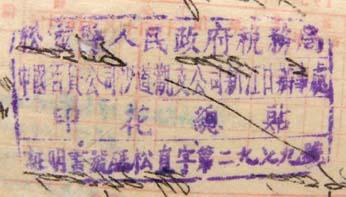 松滋縣人民政府稅務局
中國百貨公司沙道觀支公司新江口辦事處
印花總貼
証明書號碼松直字第二九七九號